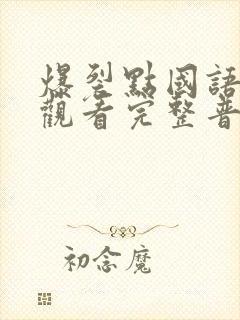 爆裂點國語
觀看完整普
初念魔